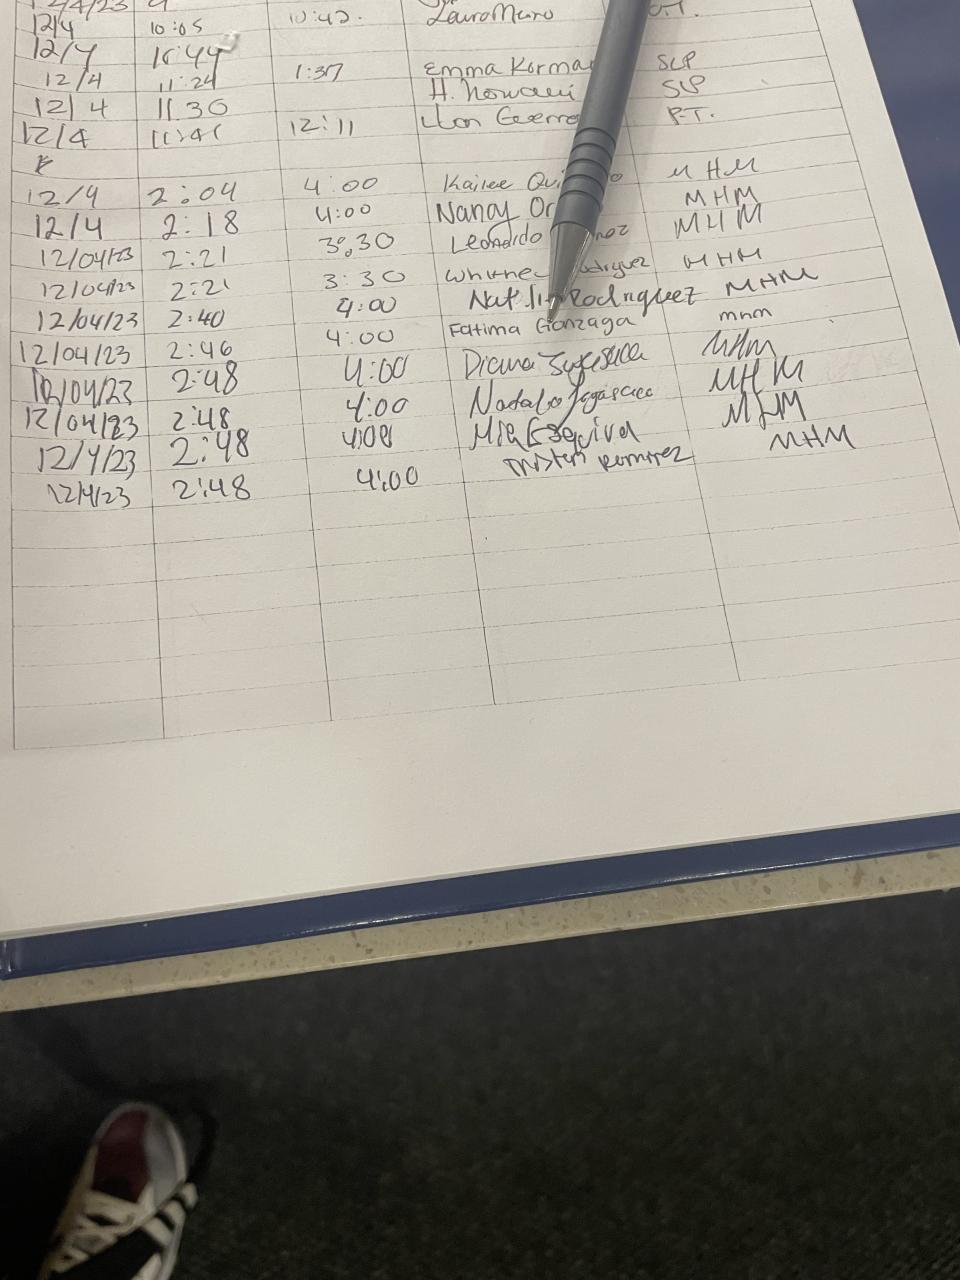 12/4 10:05 10:42. Laura Muro O.T.
12/4 10:44
12/4 11:24 1:37 Emma Korma SLP
12/4 11:30 H. SLP
12/4 11:41 12:11 P.T.
12/4 2:04 4:00 Kailee Qui o MHM
12/4 2:18 4:00 Nancy Or MHM
12/04/23 2:21 3:30 Leonardo noz MHM
12/04/23 2:21 3:30 Whitne odriguez MHM
12/04/23 2:40 4:00 Rodriguez MHM
12/04/23 2:46 4:00 Fatima Gonzaga MHM
12/04/23 2:48 4:00 Diana MHM
12/04/23 2:48 4:00 MHM
12/4/23 2:48 4:00 Mia Esquivel MHM
12/4/23 2:48 4:00 Ramirez MHM